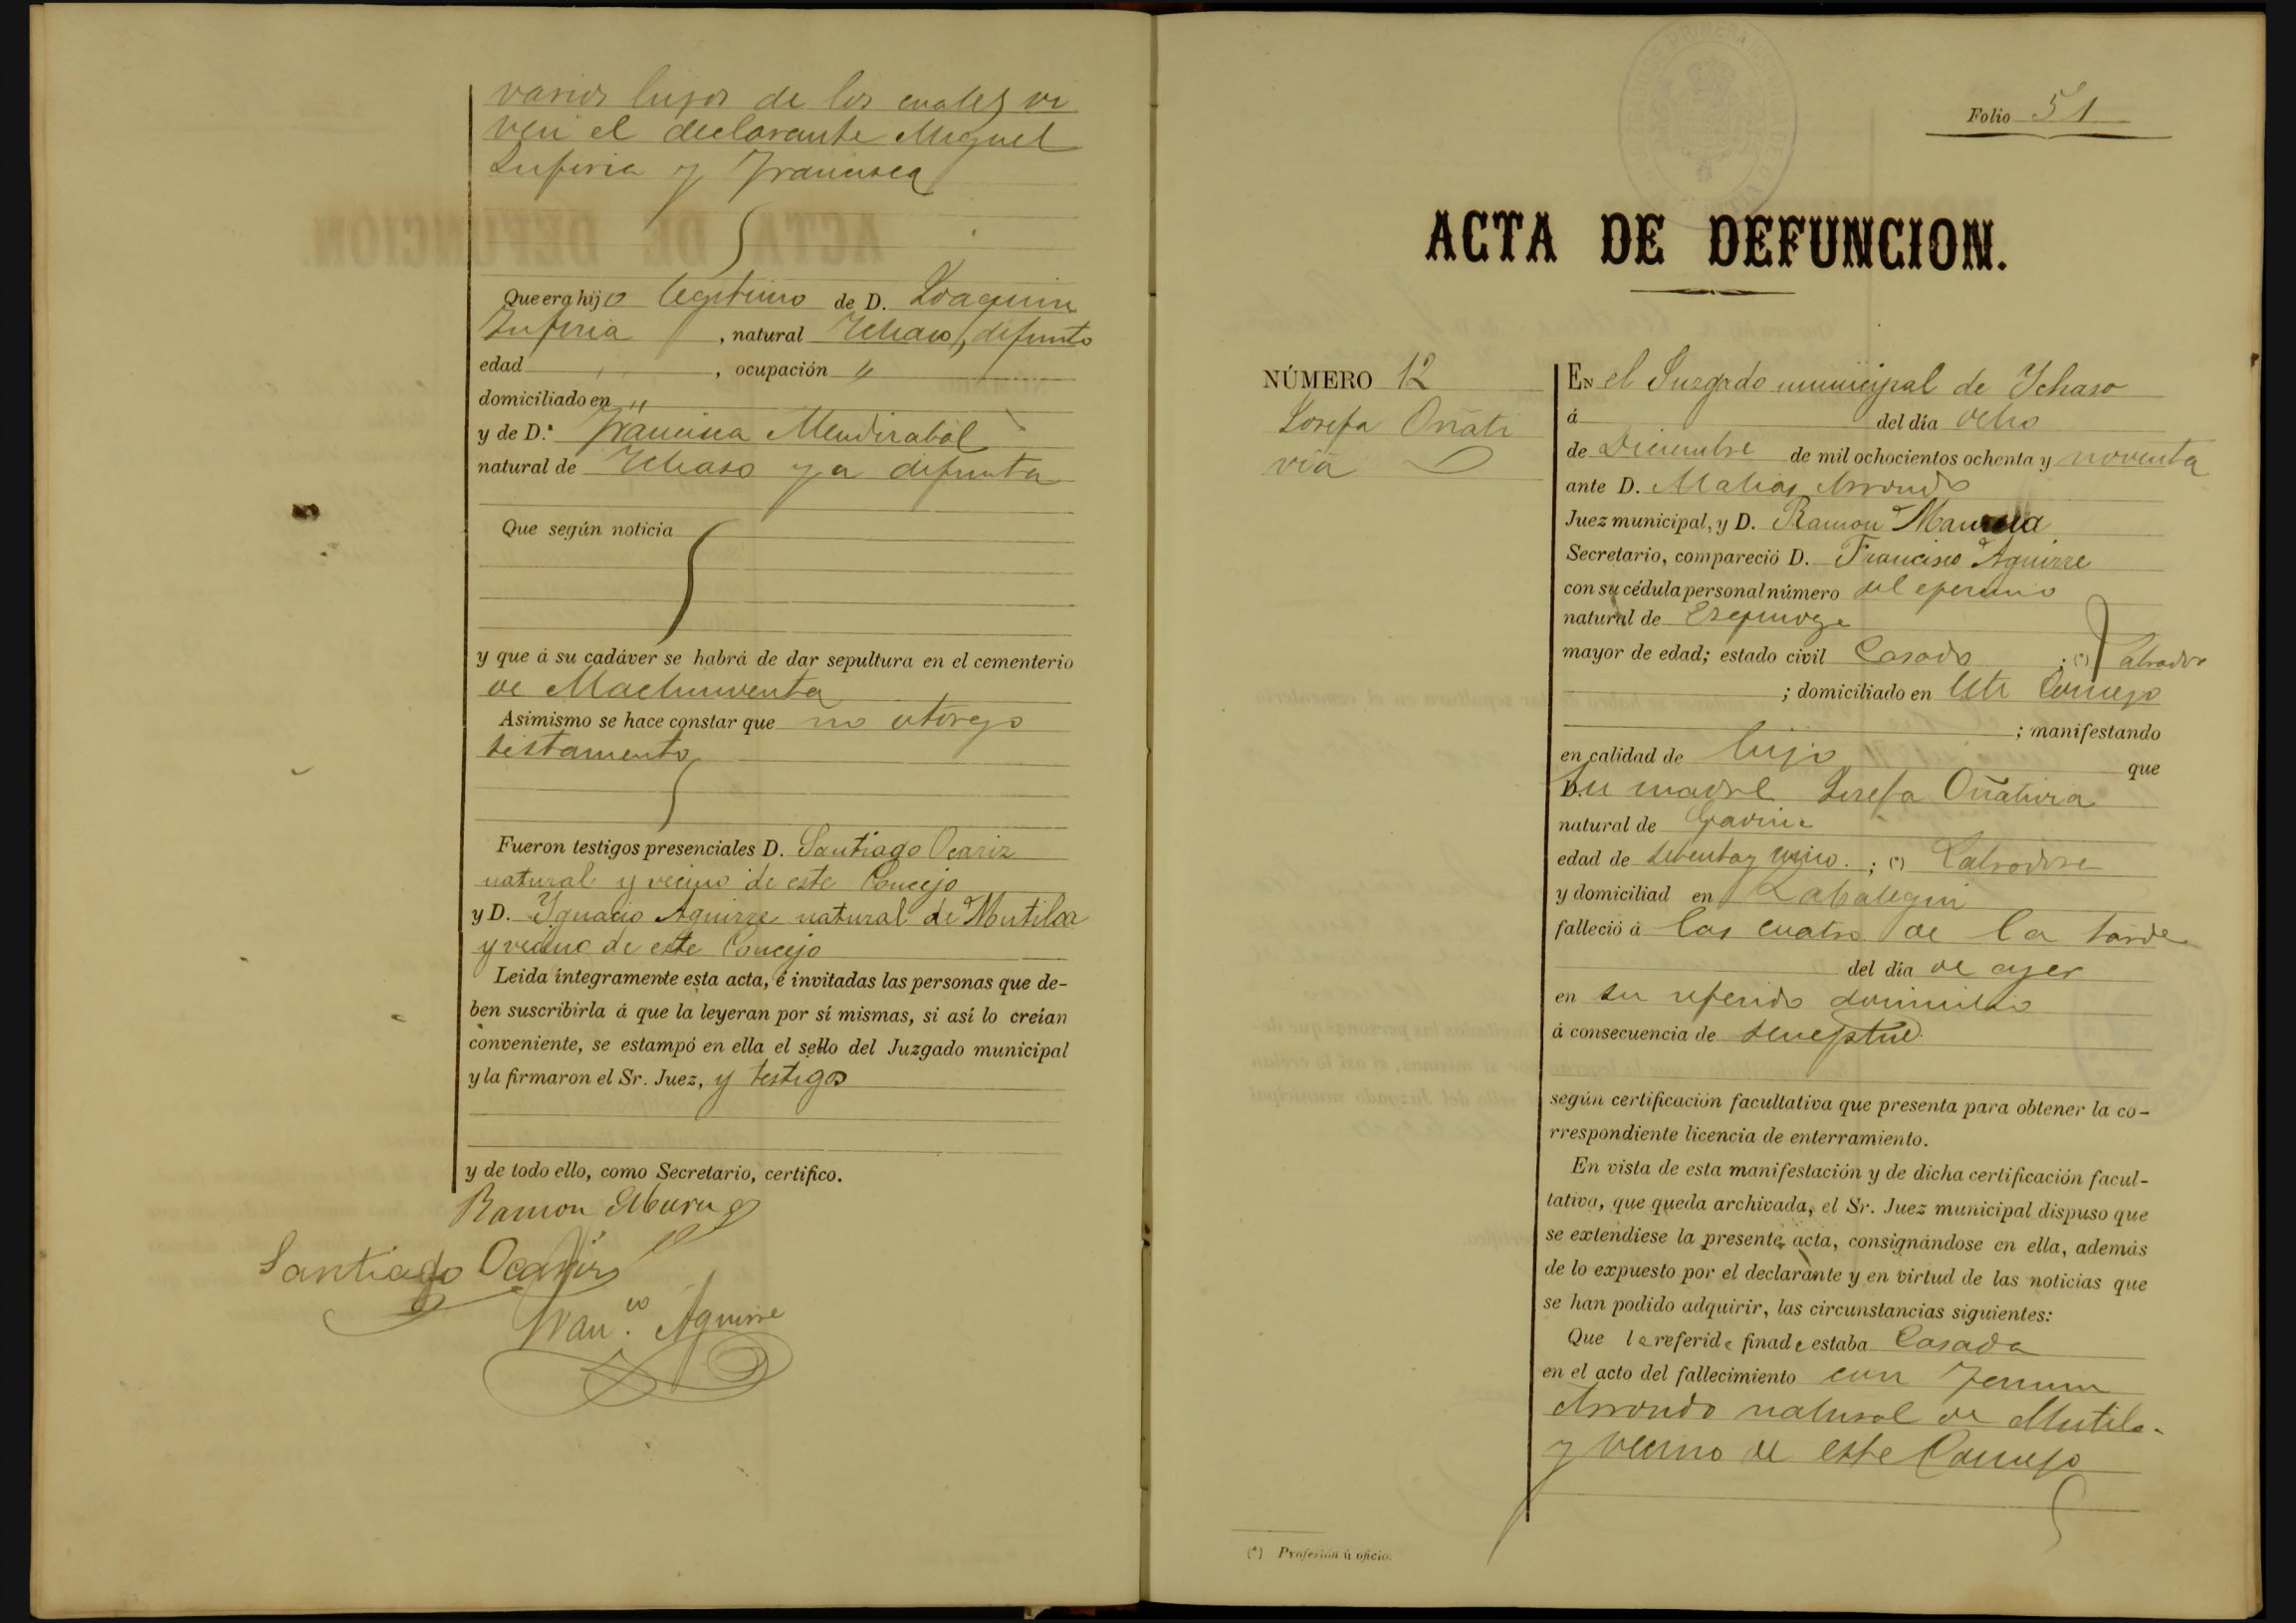 varios hijos de los cuales vi
ven el declarante Miguel
y Francisca
Que era hijo legitimo de D. Joaquin
, natural Ichaso, difunto
edad " , ocupación "
domiciliado en "
y de D.ª Francisca Mendizabal
natural de Ichaso ya difunta
Que según noticia
y que á su cadáver se habrá de dar sepultura en el cementerio
de Machinventa
Asimismo se hace constar que no otorgo
testamento
Fueron testigos presenciales D. Santiago Ocariz
natural y vecino de este Concejo
y D. Ygnacio Aguirre natural de Mutiloa
y vecino de este Concejo
Leida íntegramente esta acta, é invitadas las personas que de-
ben suscribirla á que la leyeran por sí mismas, si así lo creían
conveniente, se estampó en ella el sello del Juzgado municipal
y la firmaron el Sr. Juez, y testigos
y de todo ello, como Secretario, certifico.
Ramon
Santiago Ocariz
Fran.co Aguirre
Folio 51
ACTA DE DEFUNCION.
NÚMERO 12
Josefa Oñati
via
EN el Juzgado municipal de Ychaso
á del día ocho
de Diciembre de mil ochocientos ochenta y noventa
ante D. Matias Arrondo
Juez municipal, y D. Ramon
Secretario, compareció D. Francisco Aguirre
con su cédula personal número del
natural de Ezquioga
mayor de edad; estado civil Casado ; (*) Labrador
; domiciliado en este Concejo
; manifestando
en calidad de hijo que
D. su madre Josefa Oñativia
natural de Gaviria
edad de setenta y cinco ; (*) Labradora
y domiciliad en
falleció á las cuatro de la tarde
del día de ayer
en su referido domicilio
á consecuencia de
según certificación facultativa que presenta para obtener la co-
rrespondiente licencia de enterramiento.
En vista de esta manifestación y de dicha certificación facul-
tativa, que queda archivada, el Sr. Juez municipal dispuso que
se extendiese la presente acta, consignándose en ella, además
de lo expuesto por el declarante y en virtud de las noticias que
se han podido adquirir, las circunstancias siguientes:
Que la referida finada estaba Casada
en el acto del fallecimiento con
Arrondo natural de Mutiloa
y vecino de este Concejo
(*) Profesión ú oficio.